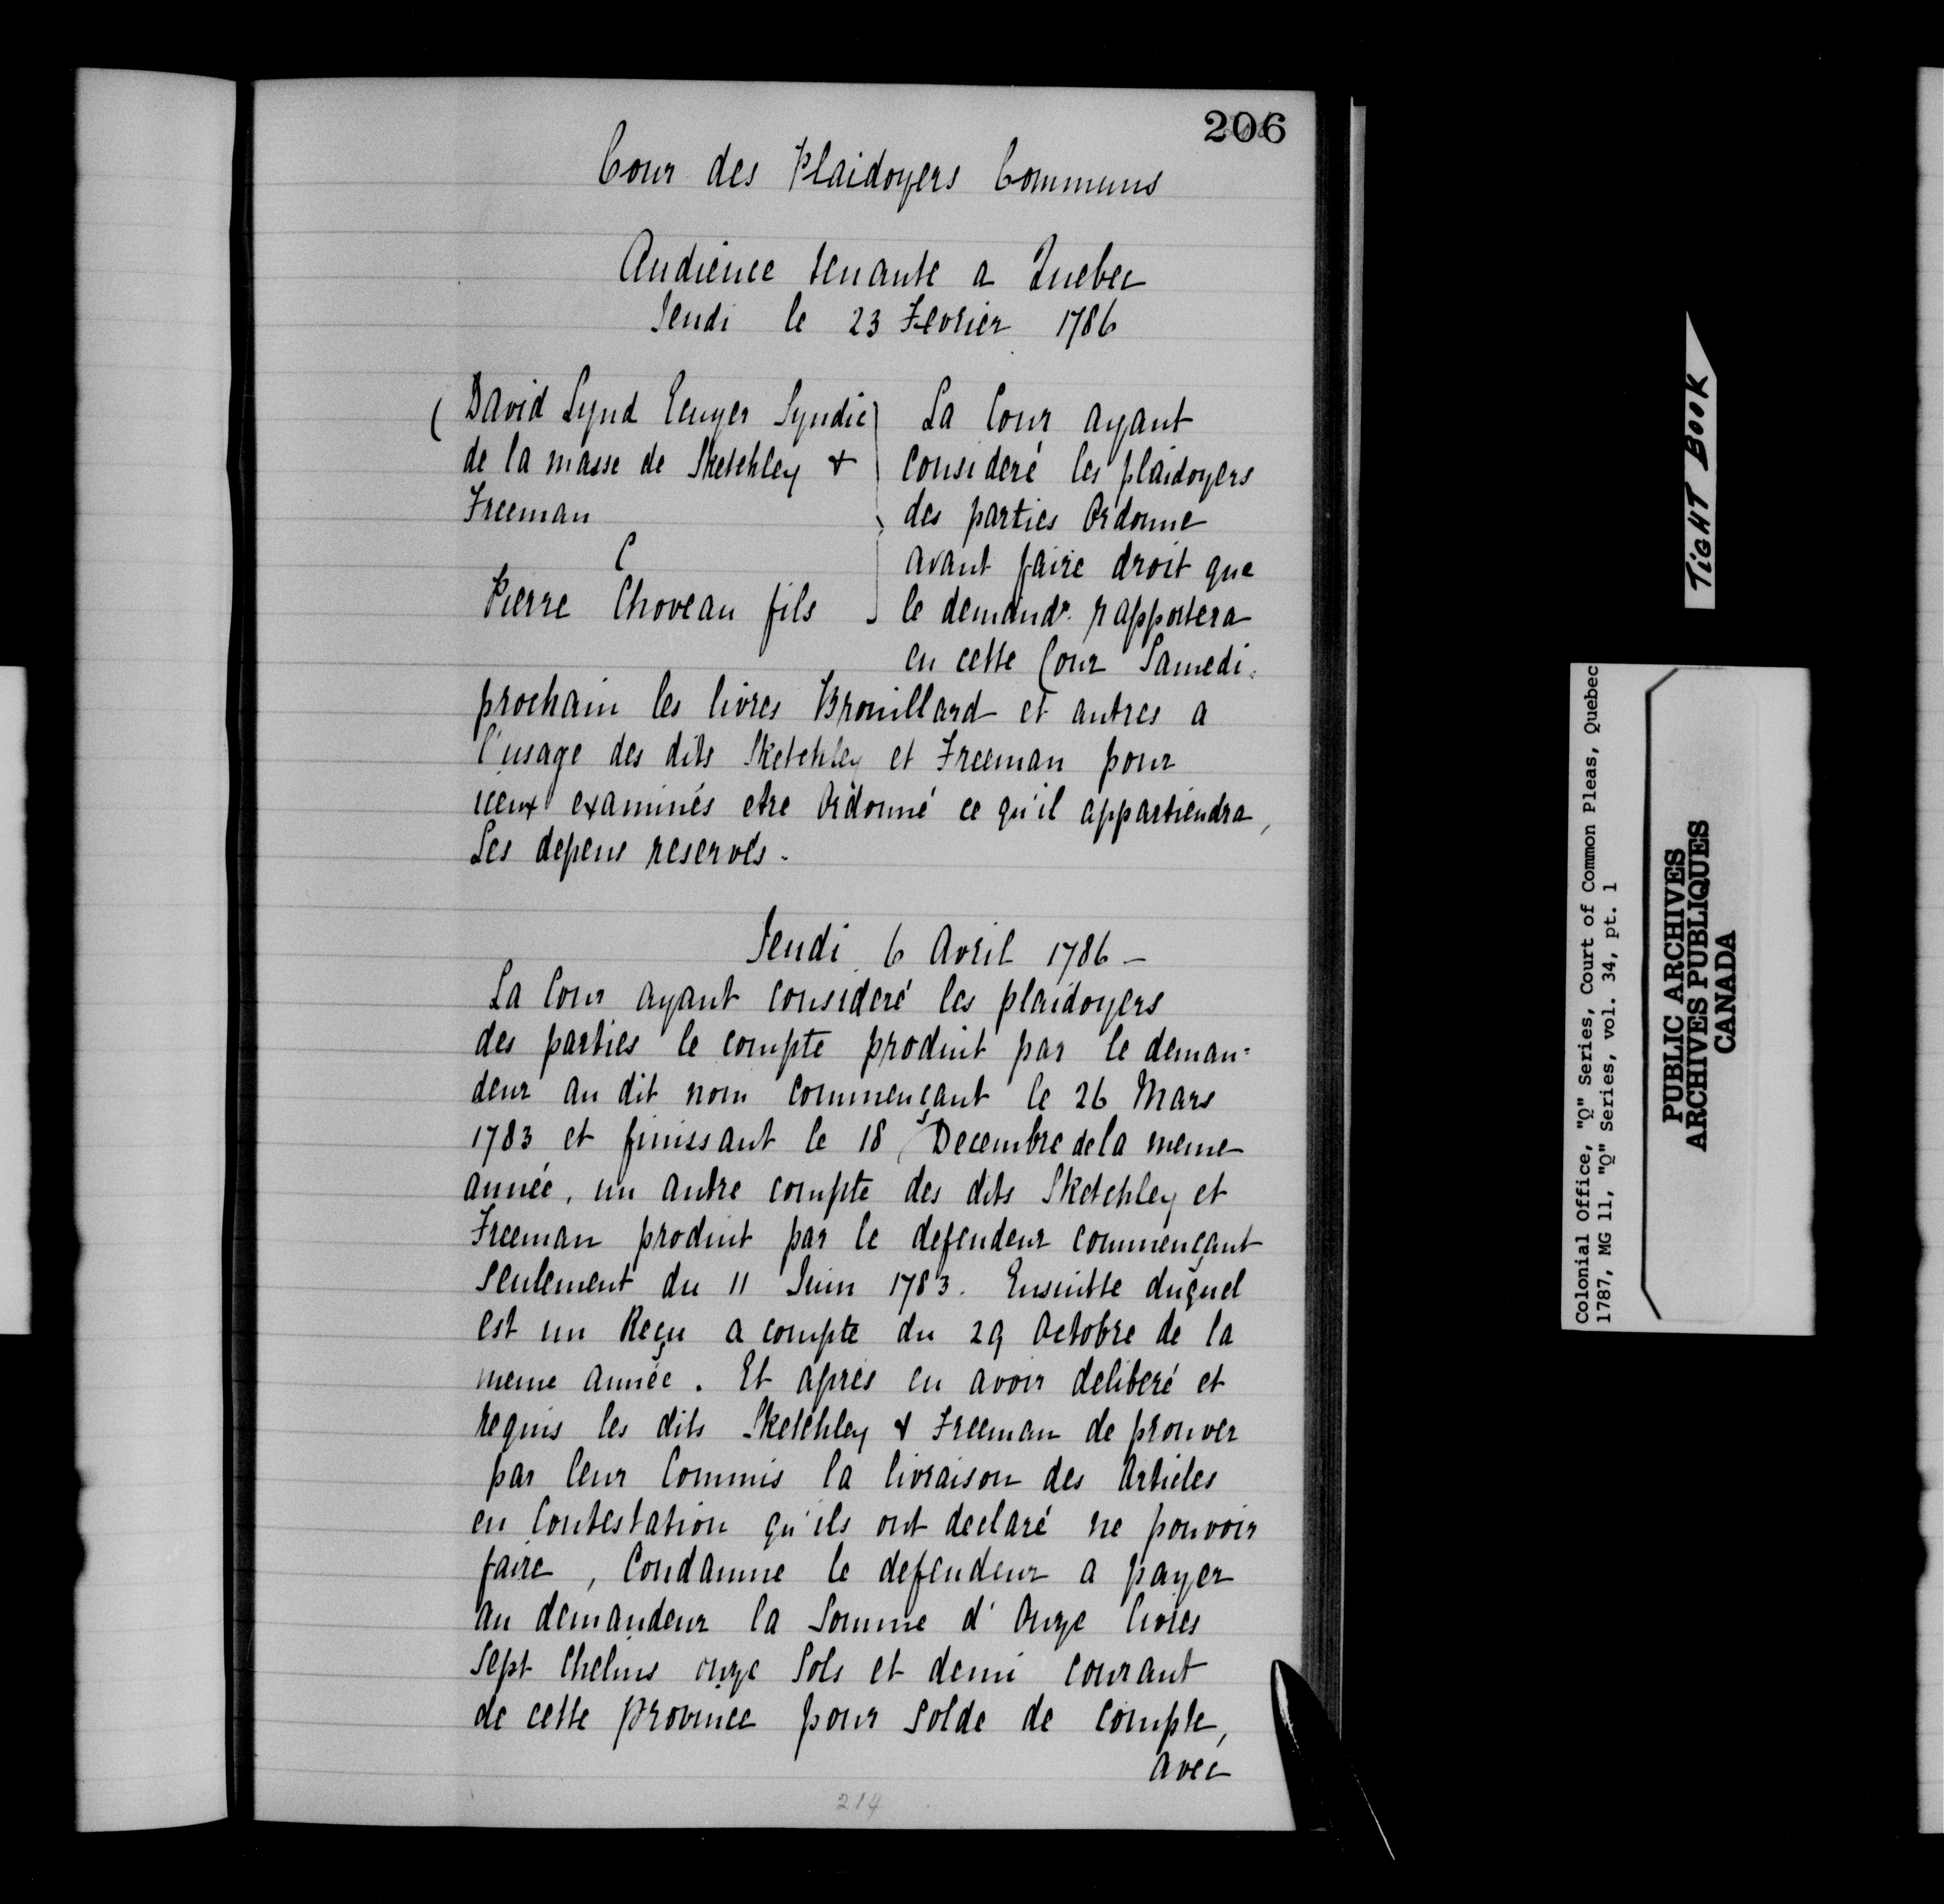 206
Cour des Plaidoyers Communs
Audience tenante a Quebec
Jeudi le 23 Fevrier 1786
David Lynd Ecuyer Syndic
de la masse de Sketchley &
Freeman
C
Pierre Choveau fils
La Cour ayant
consideré les plaidoyers
des parties Ordonne
avant faire droit que
le demandr. rapportera
en cette Cour Samedi
prochain les livres Brouillard et autres a
l'usage des dits Sketchley et Freeman pour
iceux examinés etre Ordonné ce qu'il appartiendra,
Les depens reservés.
Jeudi 6 Avril 1786 -
La Cour ayant consideré les plaidoyers
des parties le compte produit par le deman=
deur au dit nom commençant le 26 Mars
1783 et finissant le 18 Decembre de la meme
année, un autre compte des dits Sketchley et
Freeman produit par le defendeur commençant
seulement du 11 Juin 1783. Ensuitte duquel
est un Reçu a compte du 29 Octobre de la
meme année. Et après en avoir deliberé et
requis les dits Sketchley & Freeman de prouver
par leur Commis la livraison des Articles
en Contestation qu'ils ont declaré ne pouvoir
faire, Condamne le defendeur a payer
au demandeur la Somme d'Onze livres
Sept Chelins onze Sols et demi courant
de cette province pour solde de compte,
avec
214
TIGHT BOOK
Colonial Office, "Q" Series, Court of Common Pleas, Quebec
1787, MG 11, "Q" Series, vol. 34, pt. 1
PUBLIC ARCHIVES
ARCHIVES PUBLIQUES
CANADA